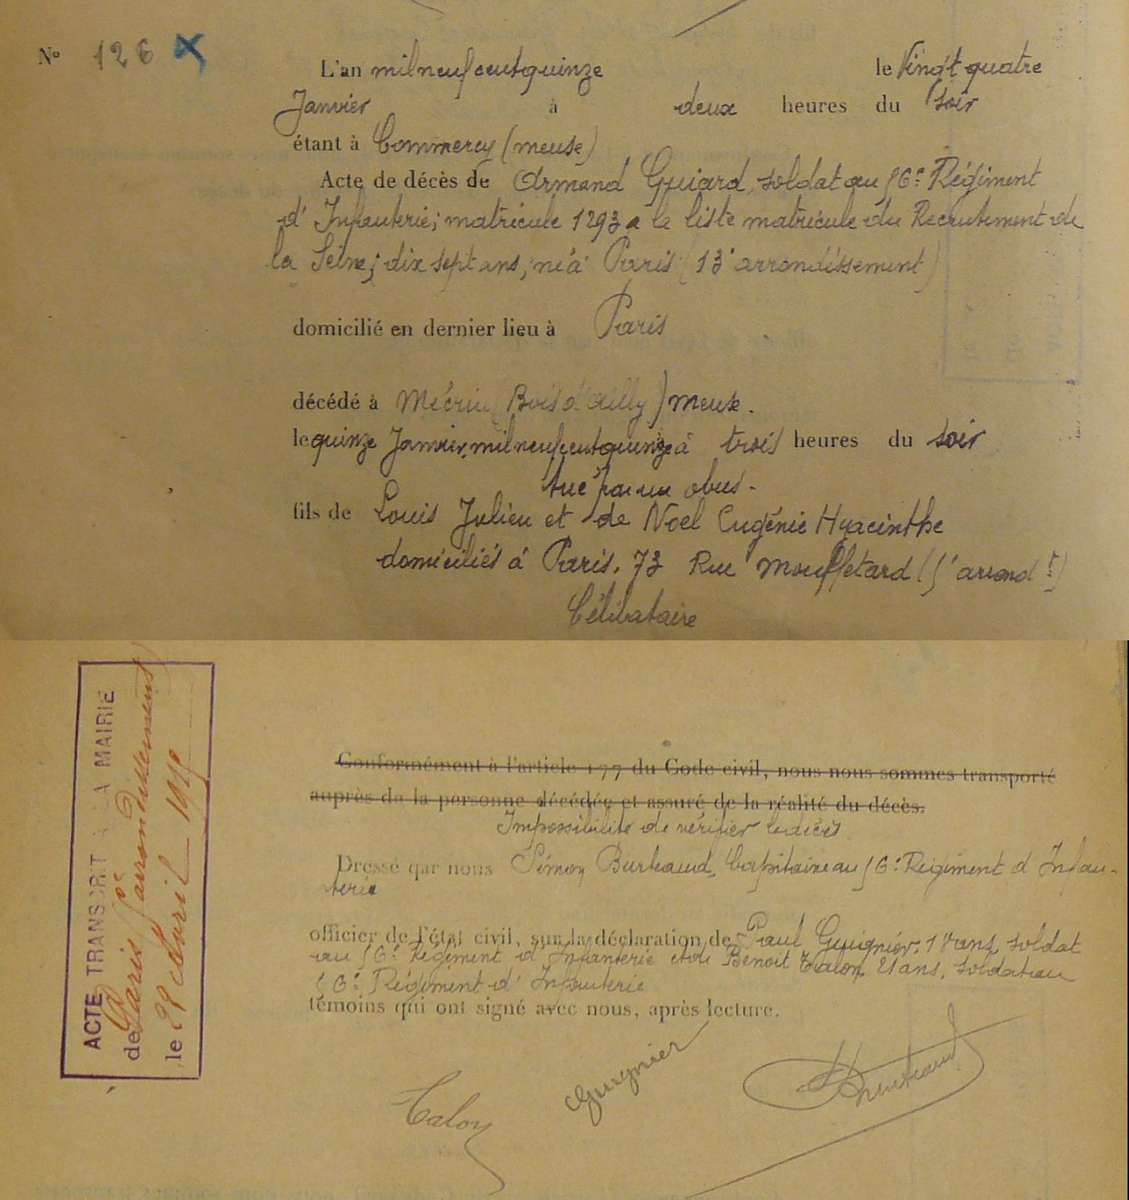 N° 126 X
L'an mil neuf cent quinze le Vingt quatre
Janvier à deux heures du soir
étant à Commercy (meuse)
Acte de décès de Armand Guiard, soldat au 56e Régiment
d'Infanterie; matricule 1293 a le liste matricule du Recrutement de
la Seine; dix sept ans, né à Paris (13e arrondissement)
domicilié en dernier lieu à Paris
décédé à Mécrin (Bois d'Ailly) meuse.
le quinze Janvier mil neuf cent quinze à trois heures du soir
tué par un obus.
fils de Louis Julien et de Noel Eugénie Hyacinthe
domiciliés à Paris. 73 Rue Mouffetard (5e arrondt)
Célibataire
ACTE TRANSCRIT A LA MAIRIE
de Paris 5e arrondissement
le 29 avril 1915
Conformément à l'article 77 du Code civil, nous nous sommes transporté
auprès de la personne décédée et assuré de la réalité du décès.
Impossibilité de vérifier le décès
Dressé par nous Simon Burteaud, Capitaine au 56e Régiment d'Infan-
terie
officier de l'état civil, sur la déclaration de Paul Guignier, ans, soldat
au 56e Régiment d'Infanterie et de Benoit Talon, 21 ans, soldat au
56e Régiment d'Infanterie
témoins qui ont signé avec nous, après lecture.
Talon Guignier Burteaud